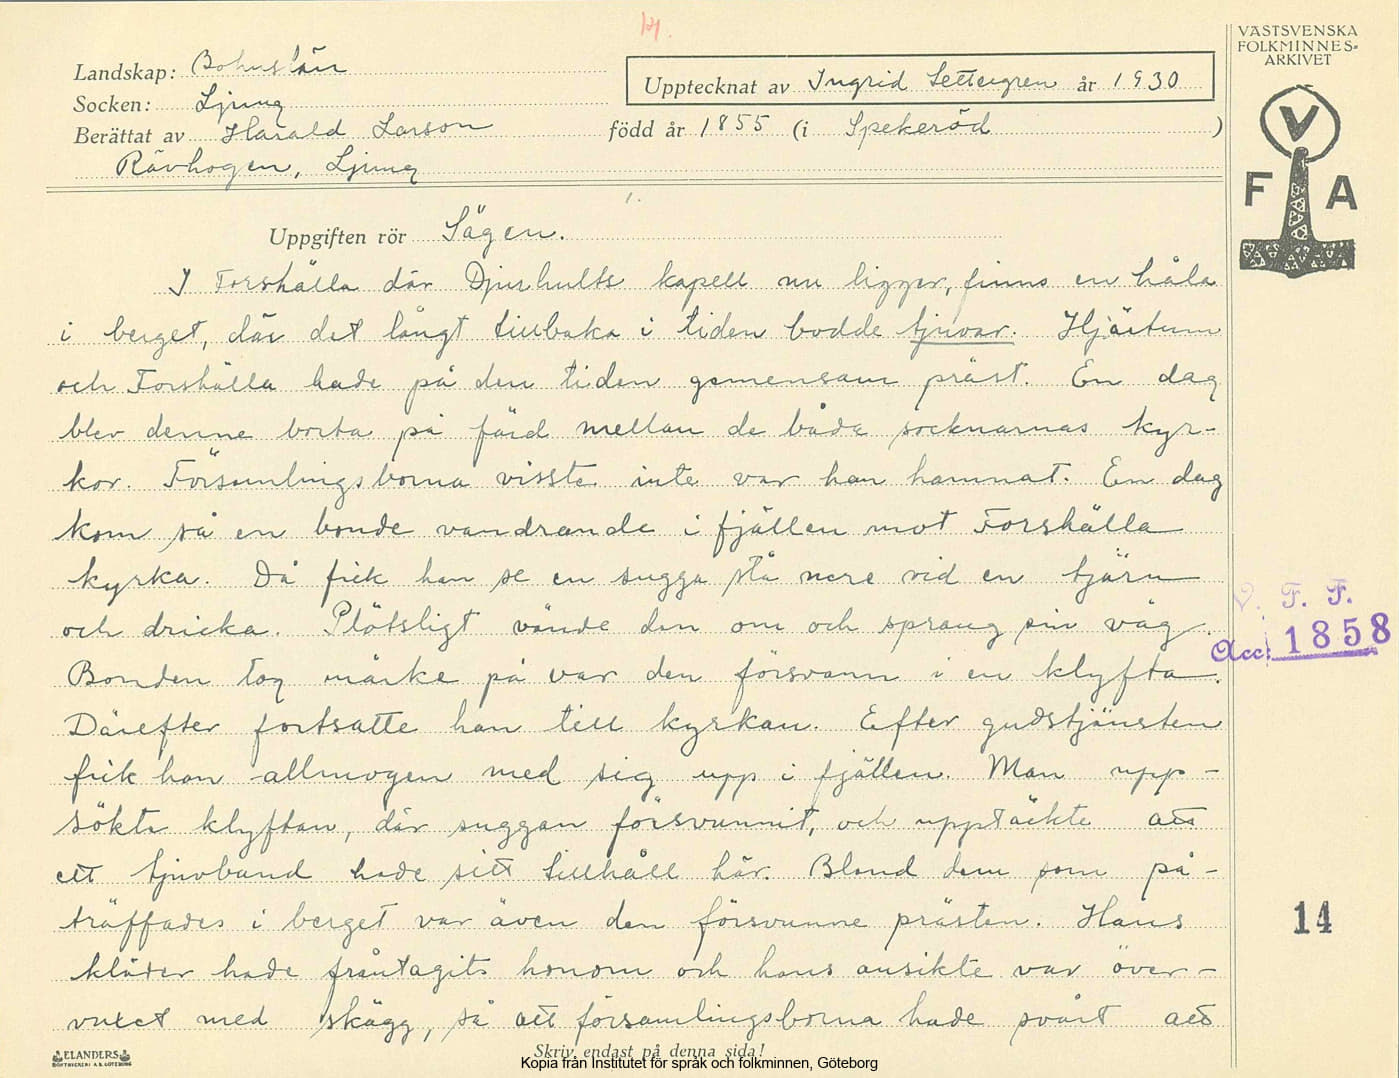 14.
VÄSTSVENSKA
FOLKMINNES-
ARKIVET
Landskap: Bohuslän
Upptecknat av Ingrid Settergren år 1930
Socken: Ljung
Berättat av Harald Larson född år 1855 (i Spekeröd )
Rävhogen, Ljung
V
F A
1.
Uppgiften rör Sägen.
I Forshälla där Djurhults kapell nu ligger, finns en håla
i berget, där det långt tillbaka i tiden bodde tjuvar. Hjärtum
och Forshälla hade på den tiden gemensam präst. En dag
blev denne borta på färd mellan de båda socknarnas kyr-
kor. Församlingsborna visste inte var han hamnat. En dag
kom så en bonde vandrande i fjällen mot Forshälla
kyrka. Då fick han se en sugga stå nere vid en tjärn
och dricka. Plötsligt vände den om och sprang sin väg.
Bonden tog märke på var den försvann i en klyfta.
Därefter fortsatte han till kyrkan. Efter gudstjänsten
fick han allmogen med sig upp i fjällen. Man upp-
sökte klyftan, där suggan försvunnit, och upptäckte att
ett tjuvband hade sitt tillhåll här. Bland dem som på-
träffades i berget var även den försvunne prästen. Hans
kläder hade fråntagits honom och hans ansikte var över-
vuxet med skägg, så att församlingsborna hade svårt att
V. F. F.
Acc: 1858
14
ELANDERS
BOKTRYCKERI A.B. GÖTEBORG
Skriv endast på denna sida!
Kopia från Institutet för språk och folkminnen, Göteborg